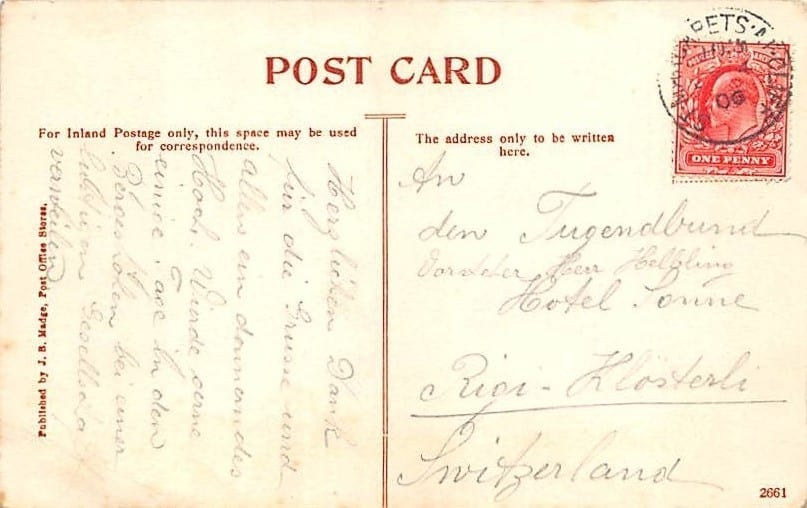 POST CARD
For Inland Postage only, this space may be used
for correspondence.
The address only to be written
here.
Herzlichen Dank
für die Grüsse und
allen ein donnerndes
Hoch. Würde gerne
einige Tage in den
bei einer
Gesellscha
verweilen
An
den Tugendbund
Vorsteher Herr Helbling
Hotel Sonne
Rigi-Klösterli
Switzerland
Published by J. B. Madge, Post Office Stores.
PETS
06
ONE PENNY
2661